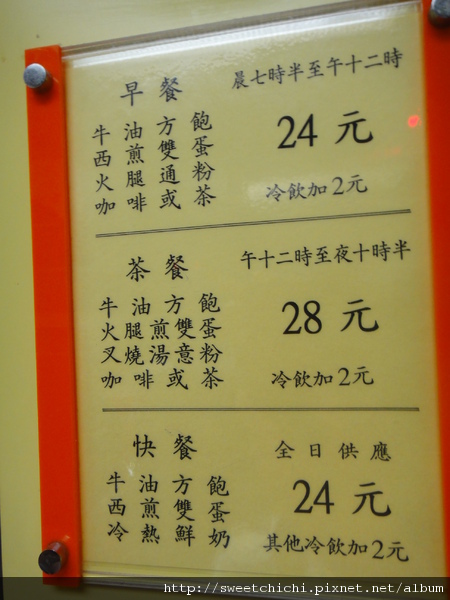 早餐
晨七時半至午十二時
牛油方飽
西煎雙蛋
火腿通粉
咖啡或茶
24元
冷飲加2元
茶餐
午十二時至夜十時半
牛油方飽
火腿煎雙蛋
叉燒湯意粉
咖啡或茶
28元
冷飲加2元
快餐
全日供應
牛油方飽
西煎雙蛋
冷熱鮮奶
24元
其他冷飲加2元
http://sweetchichi.pixnet.net/album